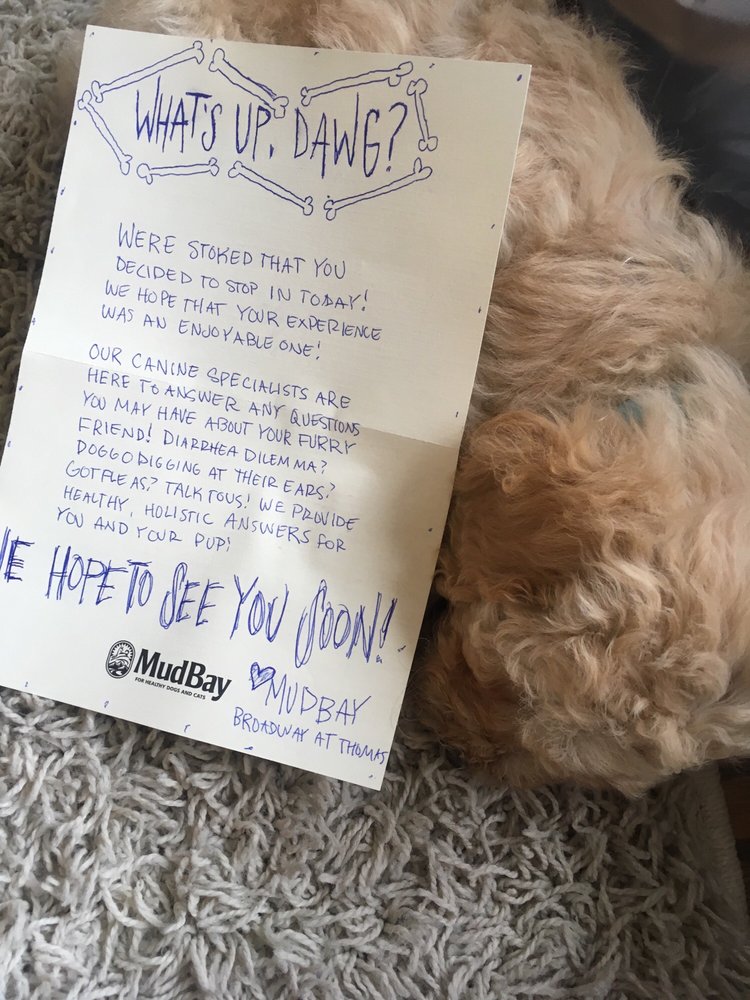 WHAT'S UP, DAWG?
WERE STOKED THAT YOU
DECIDED TO STOP IN TODAY!
WE HOPE THAT YOUR EXPERIENCE
WAS AN ENJOYABLE ONE!
OUR CANINE SPECIALISTS ARE
HERE TO ANSWER ANY QUESTIONS
YOU MAY HAVE ABOUT YOUR FURRY
FRIEND! DIARRHEA DILEMMA?
DOGGO DIGGING AT THEIR EARS?
GOT FLEAS? TALK TO US! WE PROVIDE
HEALTHY, HOLISTIC ANSWERS FOR
YOU AND YOUR PUP!
WE HOPE TO SEE YOU SOON!
MudBay
FOR HEALTHY DOGS AND CATS
♡MUDBAY
BROADWAY AT THOMAS